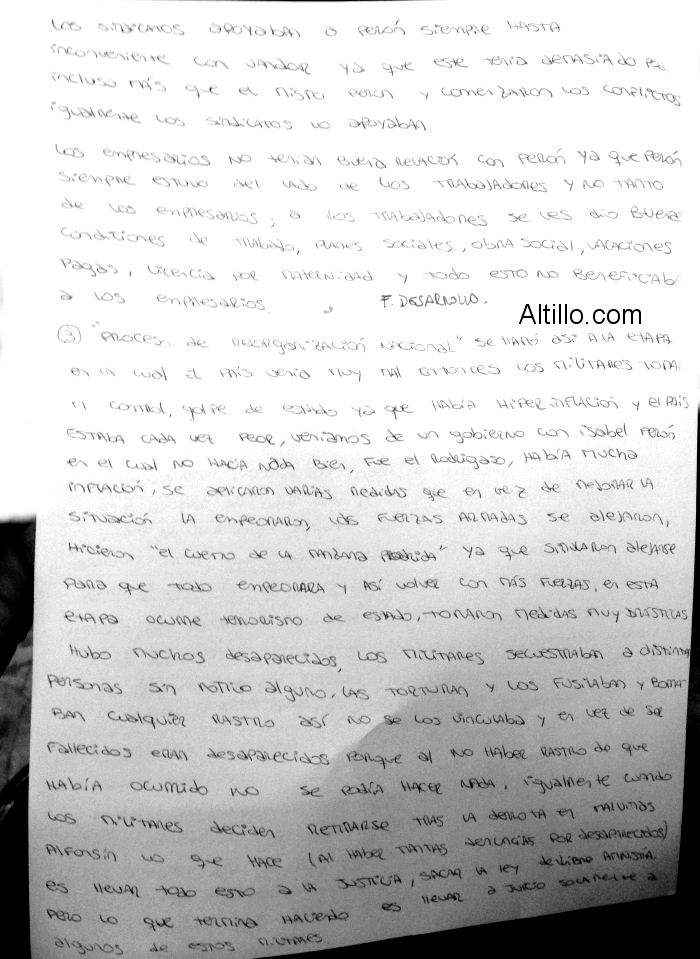 LOS SINDICATOS APOYABAN A PERÓN SIEMPRE HASTA
inconveniente con VANDOR ya que este tenia DEMASIADO
incluso MÁS que el mismo PERÓN y comenzaron LOS CONFLICTOS
igualmente LOS SINDICATOS LO APOYABAN.
LOS EMPRESARIOS NO tenian BUENA RELACIÓN con PERÓN ya que PERÓN
siempre estuvo del LADO de LOS TRABAJADORES y NO TANTO
de LOS EMPRESARIOS; A LOS TRABAJADORES se LES DIO BUENA
condiciones de TRABAJO, PLANES SOCIALES, OBRA SOCIAL, VACACIONES
PAGAS, LICENCIA POR MATERNIDAD y todo esto NO BENEFICIAB
A LOS EMPRESARIOS. F. DESARROLLO.
Altillo.com
③ "PROCESO de REORGANIZACIÓN NACIONAL" se LLAMÓ ASI A LA ETAPA
en LA cual el PAÍS venia MUY MAL entonces LOS MILITARES TOMA
el control, golpe de estado ya que HABÍA HIPERINFLACIÓN y el PAÍS
ESTABA CADA vez PEOR, veniamos de un gobierno con ISABEL PERÓN
en el cual NO HACÍA NADA Bien, Fue el Rodrigaso, HABÍA MUCHA
INFLACIÓN, se APLICARON VARIAS MEDIDAS que en vez de MEJORAR LA
SITUACIÓN LA EMPEORARON, LAS FUERZAS ARMADAS se ALEJARON,
HICIERON "el CUENTO de LA MANZANA PODRIDA" ya que SIMULARON ALEJARSE
PARA que todo EMPEORARA y ASÍ volver con MÁS FUERZAS, en ESTÁ
ETAPA OCURRE terrorismo de estado, TOMARON MEDIDAS MUY DRÁSTICAS
HUBO MUCHOS desaparecidos, LOS MILITARES SECUESTRABAN a DISTINTA
PERSONAS SIN MOTIVO ALGUNO, LAS TORTURAN y LOS FUSILABAN y BORRA
BAN CUALQUIER RASTRO ASÍ NO se LOS VINCULABA y en vez de SER
FALLECIDOS ERAN desaparecidos PORQUE AL NO HABER RASTRO de que
HABÍA OCURRIDO NO se PODÍA HACER NADA, igualmente cuando
LOS MILITARES deciden RETIRARSE TRAS LA DERROTA en MALVINAS
ALFONSÍN LO que HACE (AL HABER TANTAS DENUNCIAS POR DESAPARECIDOS)
es LLEVAR todo ESTO A LA JUSTICIA, SACAR LA LEY de AMNISTÍA
PERO LO que termina HACIENDO es LLEVAR A JUICIO SOLAMENTE A
algunos de estos MILITARES